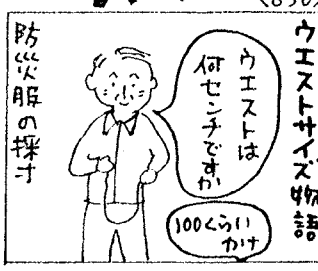 ウエストサイズ物語
ウエストは
何センチですか
100くらい
かナ
防災服の採寸